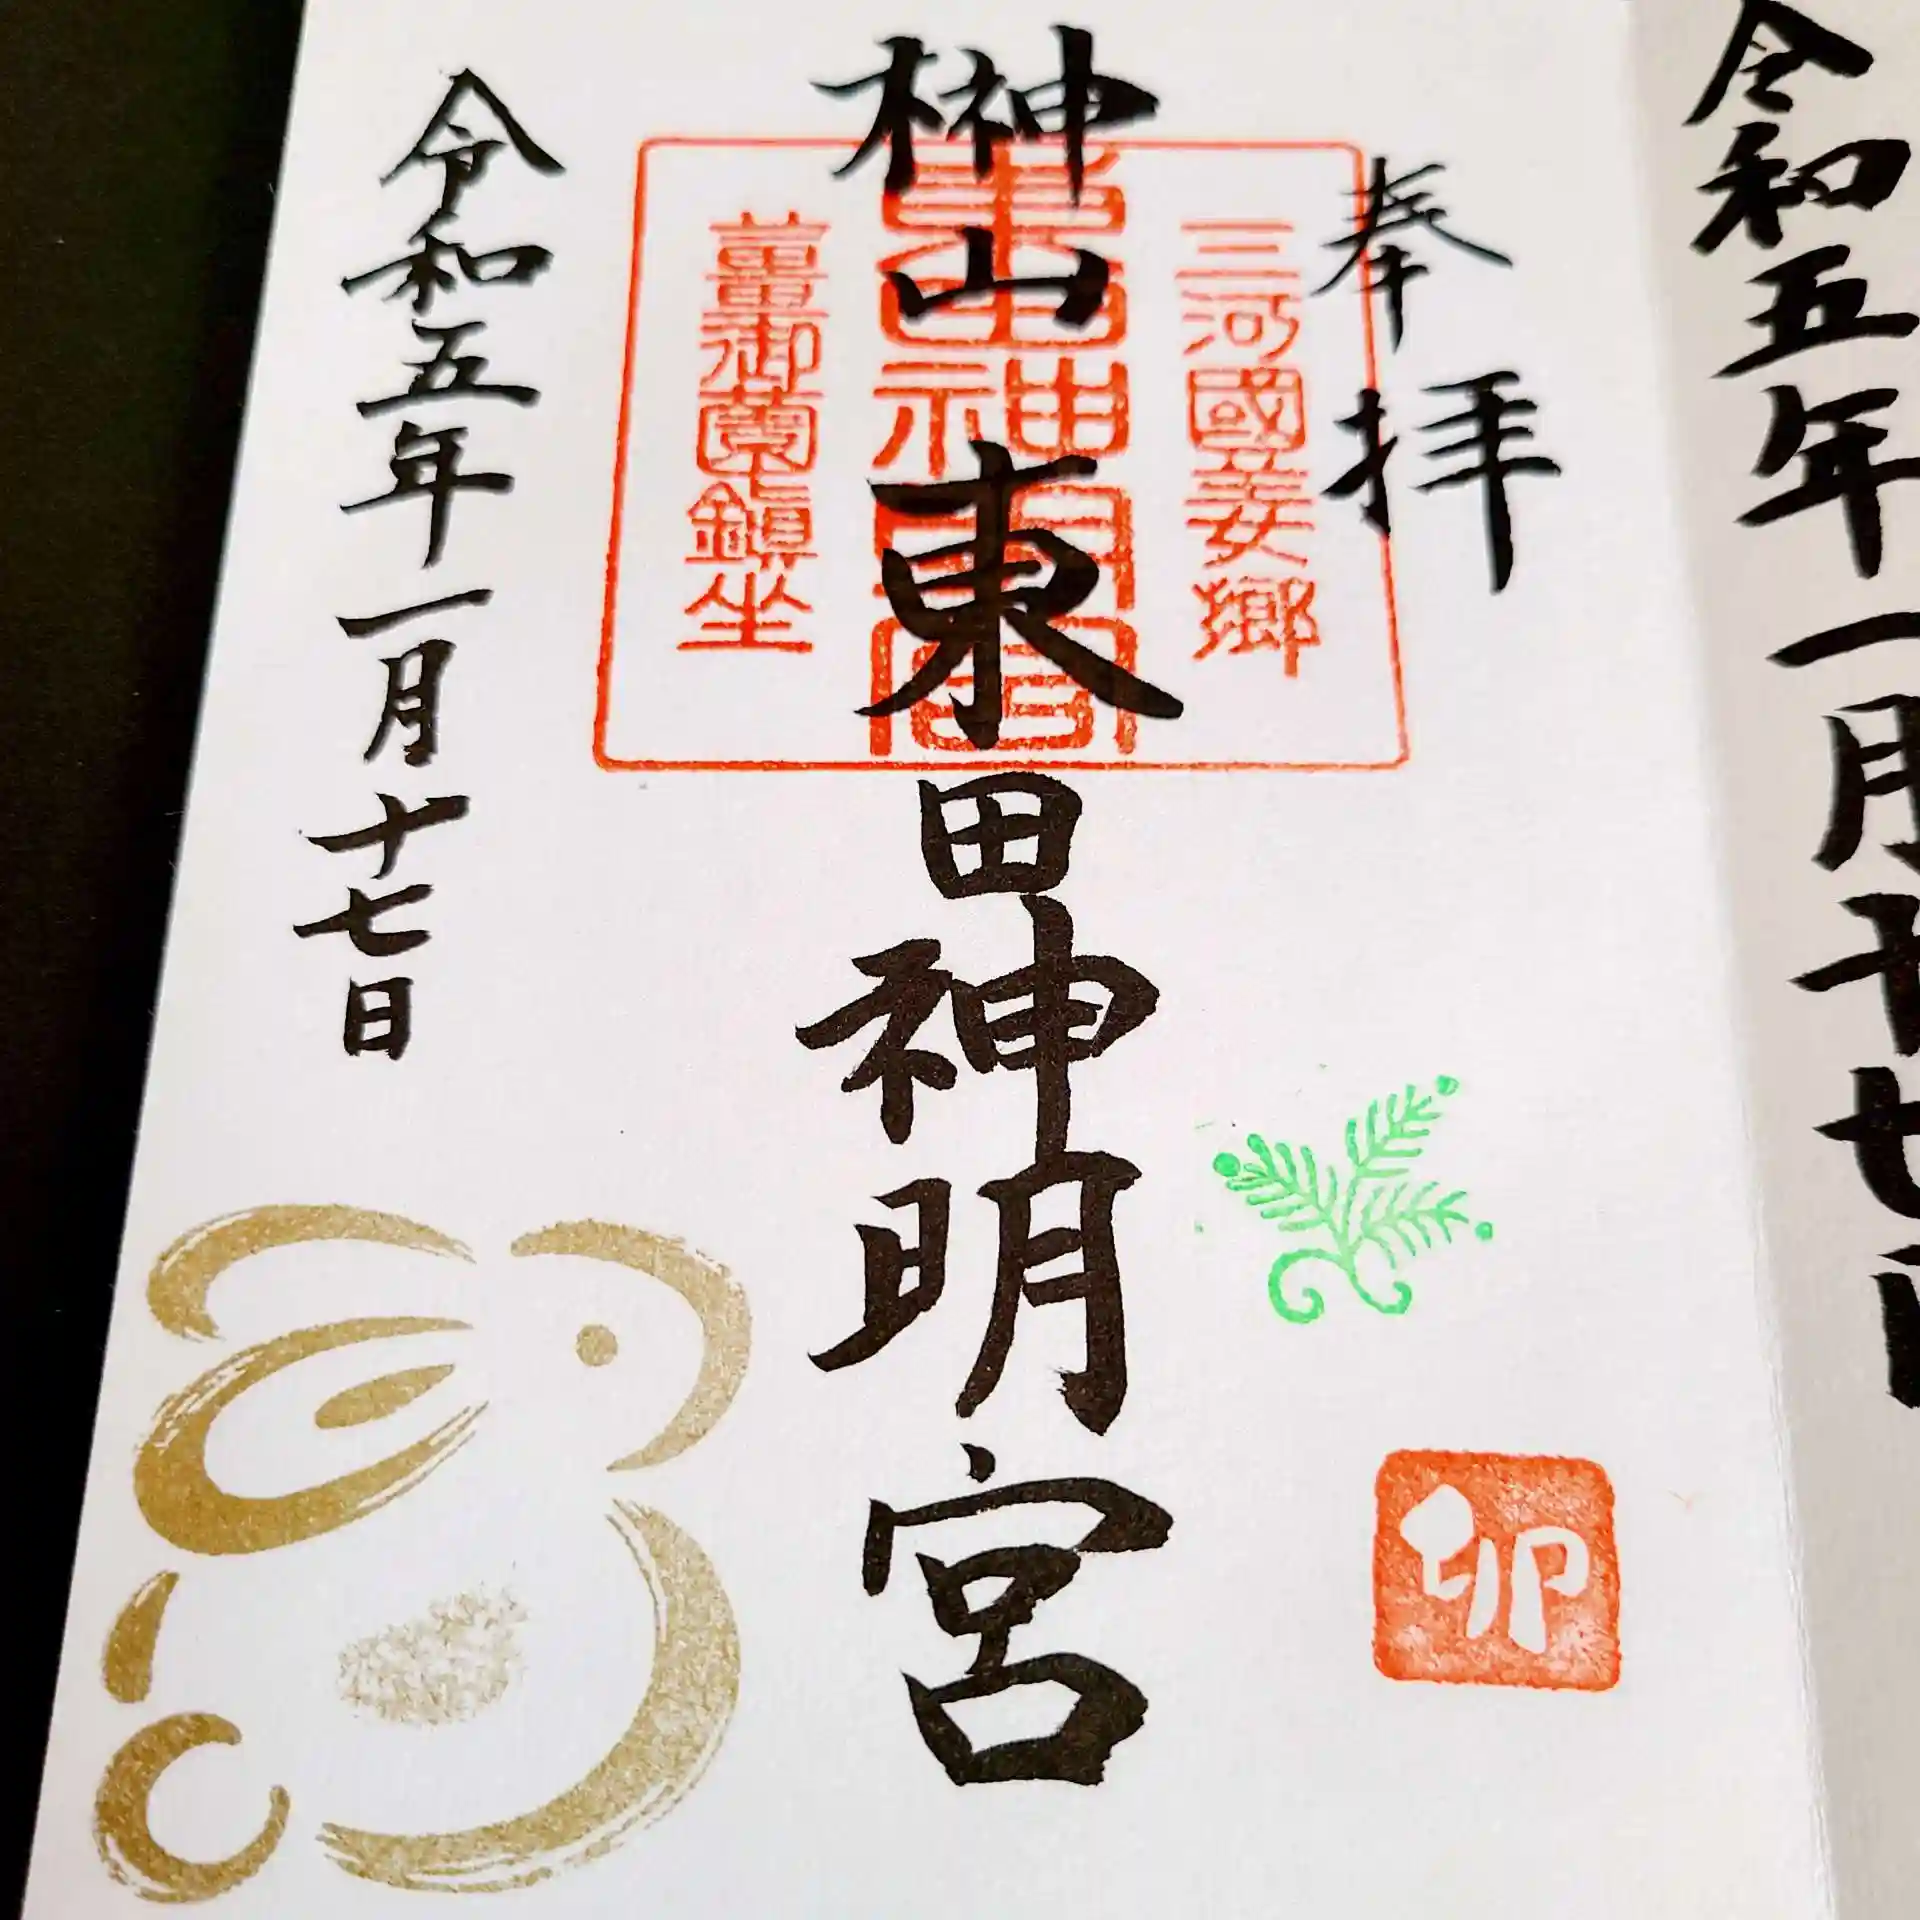 令和五年一月十七
奉拝
三河國姜郷
榊山 東田神明宮
東田神明宮
薑御薗鎮坐
令和五年一月十七日
卯